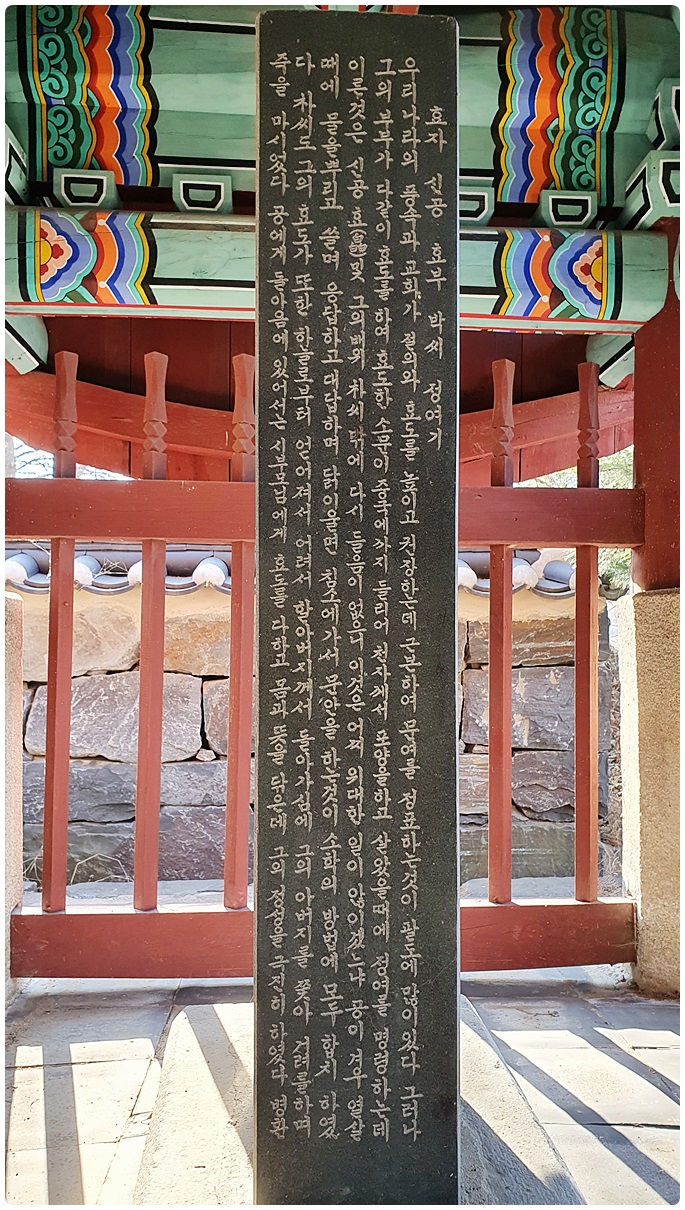 효자 신공 효부 박씨 정여기
우리나라의 풍속과 교화가 절의와 효도를 높이고 권장한는데 근본하여 문여를 정표하는것이 팔도에 많이있다 그러나
그의 부부가 다같이 효도를 하여 효도한 소문이 중국에까지 들리어 천자께서 포양을하고 살았을때에 정여를 명령하는데
이른것은 신공 효 및 그의배위 차씨 밖에 다시 들음이 없으니 이것은 어찌 위대한 일이 않이겠는냐 공이 겨우 열살
때에 물을뿌리고 쓸며 응답하고 대답하며 닭이울면 침소에가서 문안을 하는것이 소학의 방법에 모두 합치 하였
다 차씨도 그의 효도가 또한 한울로부터 얻어져서 어려서 할아버지께서 돌아가심에 그의 아버지를 쫓아 거려를하며
죽을 마시었다 공에게 돌아음에 있어서는 시부모님에게 효도를 다하고 몸과 뜻을 닦은데 그의 정성을 극진히 하였다 병환